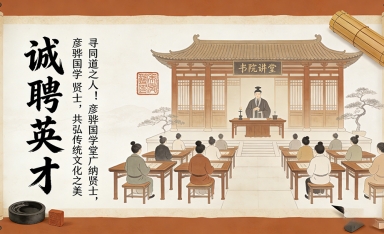 诚聘英才
寻同道之人！彦骅国学堂广纳贤士，
彦骅国学 贤士，共弘传统文化之美
书院讲堂